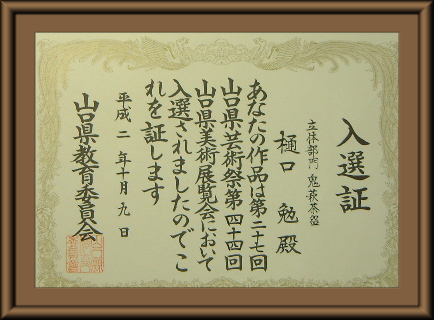 入選証
立体部門 鬼萩茶盌
樋口 勉 殿
あなたの作品は第二十七回
山口県芸術祭第四十四回
山口県美術展覧会において
入選されましたのでこ
れを証します
平成二年十月九日
山口県教育委員会